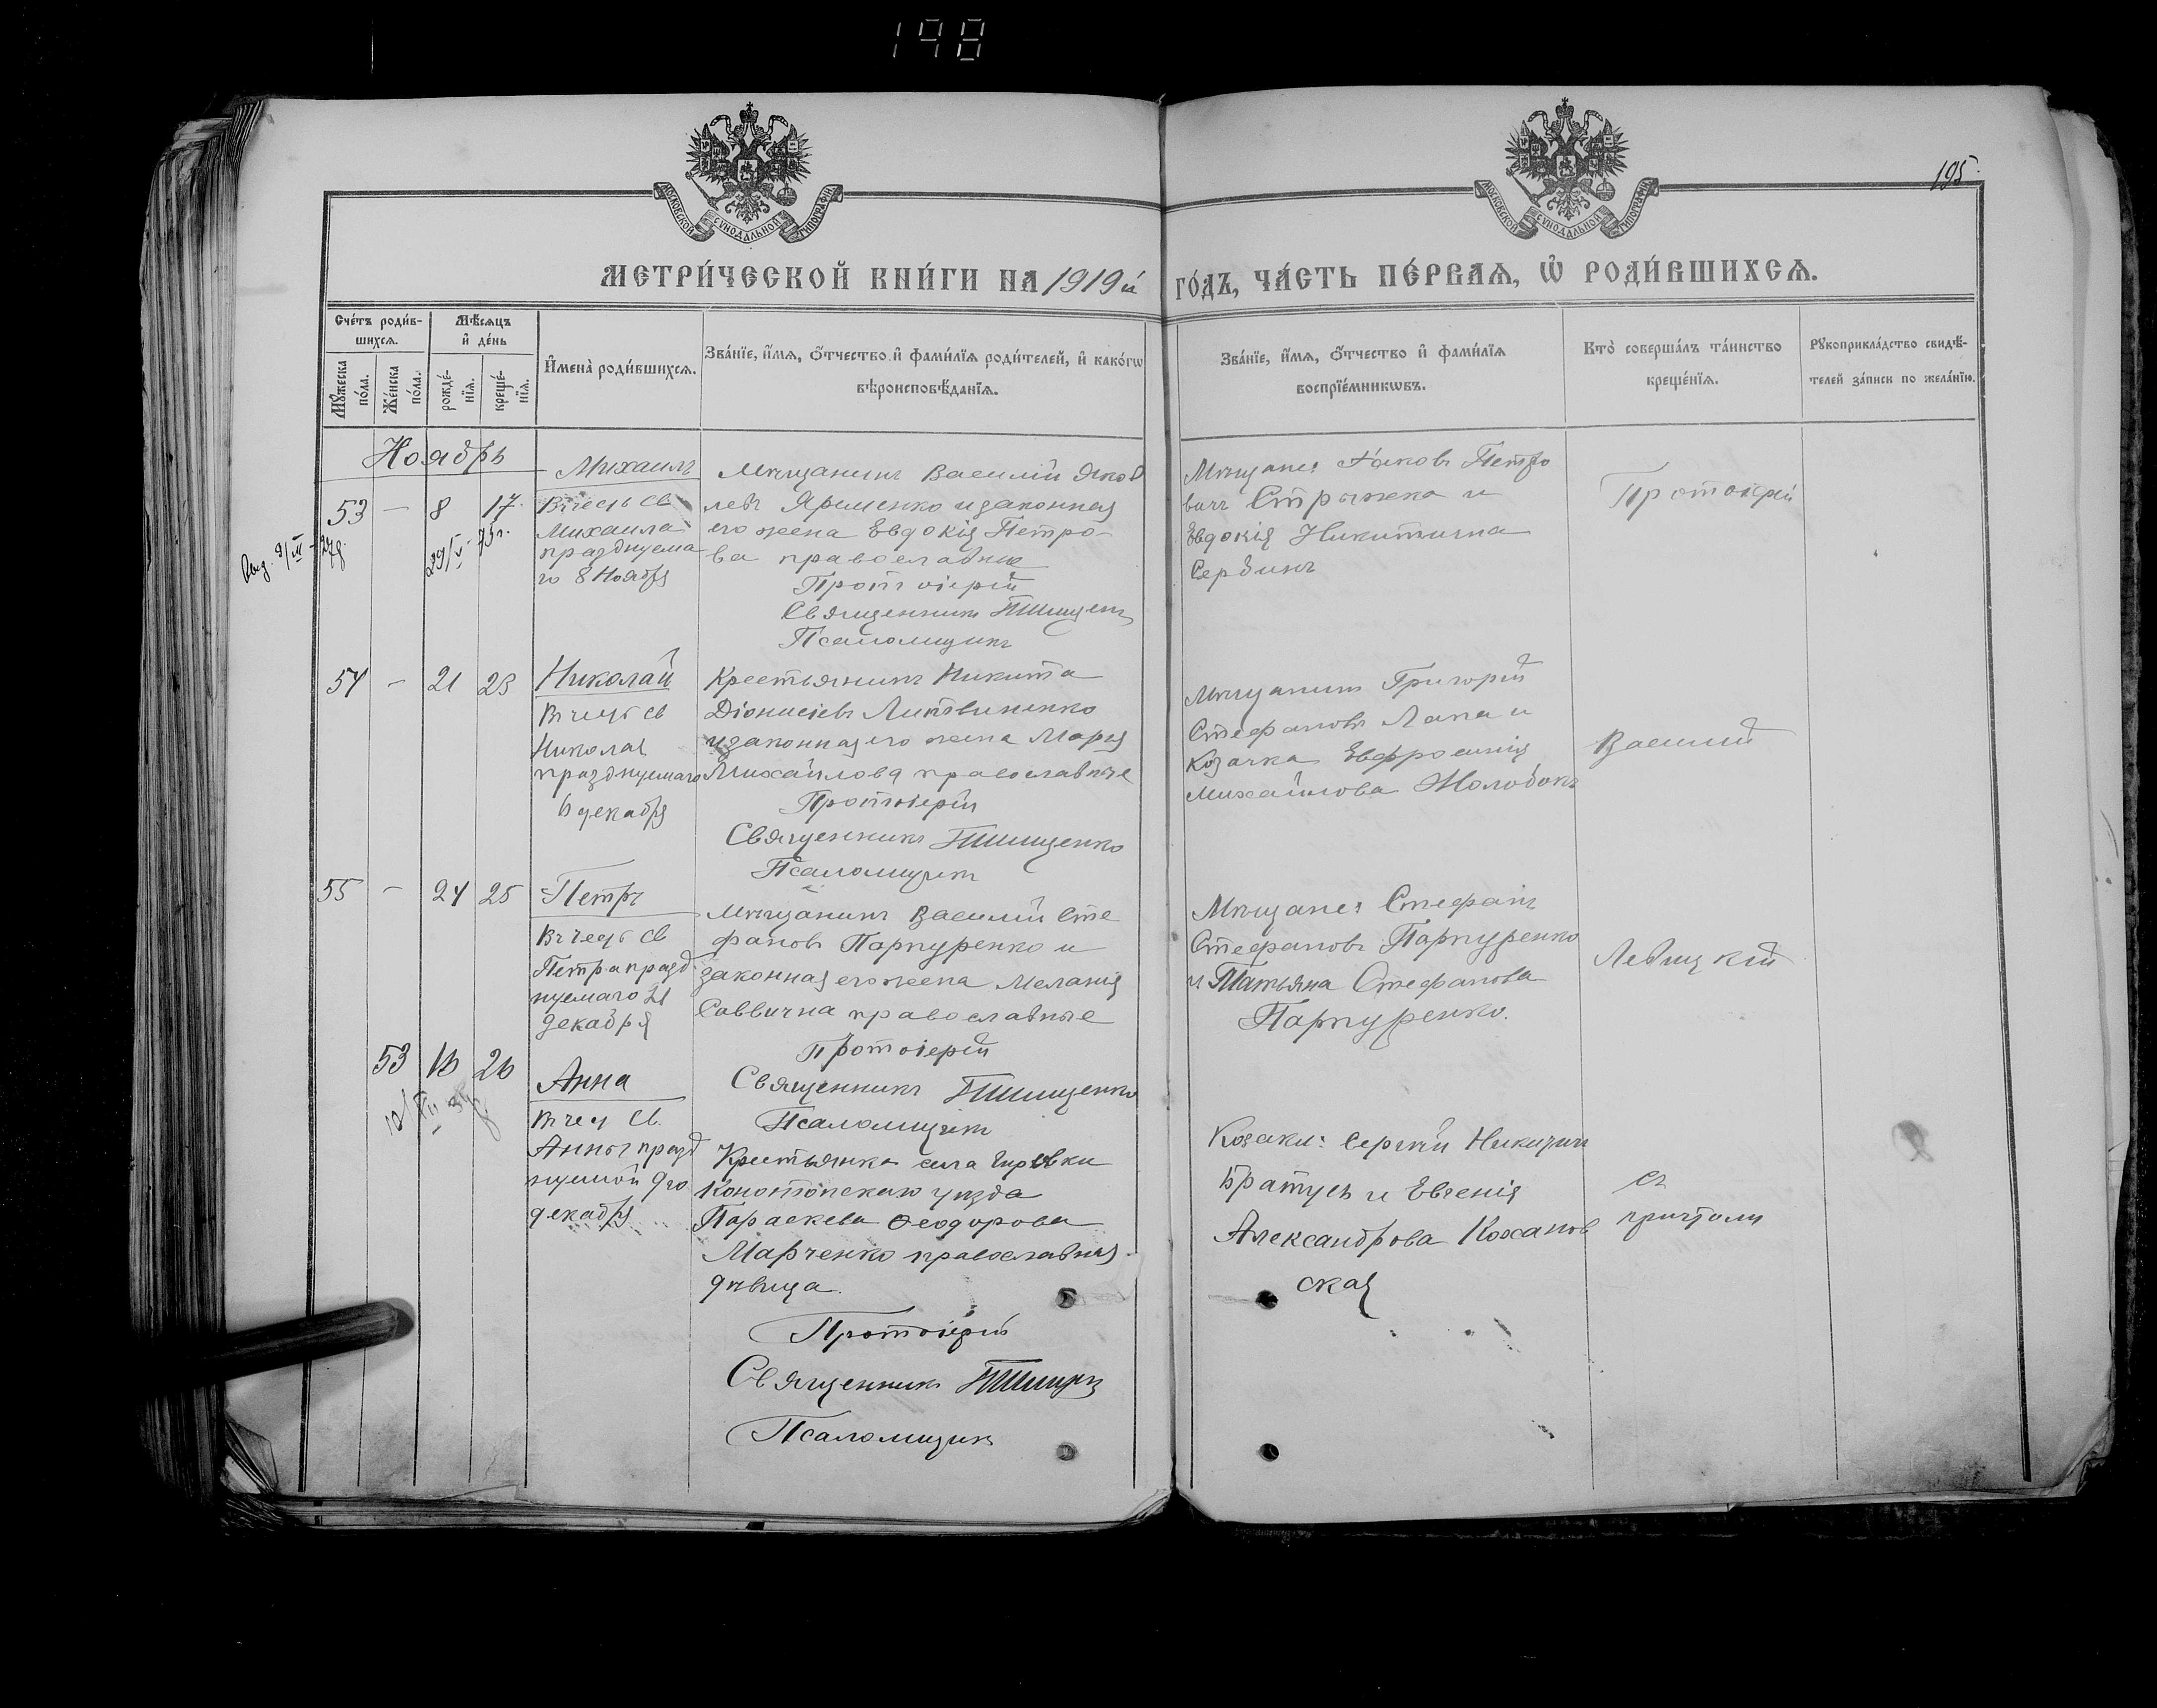 198
195
МЕТРИ́ЧЕСКОЙ КНИ́ГИ НА 1919й
ГО́ДЪ, ЧА́СТЬ ПЕ́РВАЯ, Ѿ РОДИ́ВШИХСЯ.
МОСКОВСКОЙ СѴНОДАЛЬНОЙ ТИПОГРАФІИ
МОСКОВСКОЙ СѴНОДАЛЬНОЙ ТИПОГРАФІИ
Сче́тъ роди́в-
шихся.
Мѣ́сяцъ
и҆ де́нь
Мꙋ́жеска по́ла.
Же́нска по́ла.
рожде́-
нїѧ.
креще́-
нїѧ.
И҆мена̀ роди́вшихсѧ.
Зва́нїе, и҆́мѧ, ѻ҆́тчество и҆ фами́лїѧ роди́телей, и҆ како́гѡ
вѣроисповѣ́данїѧ.
Зва́нїе, и҆́мѧ, ѻ҆́тчество и҆ фами́лїѧ
воспрїе́мникѡвъ.
Кто̀ соверша́лъ та́инство
креще́нїѧ.
Рꙋкоприкла́дство свидѣ́-
телей за́писи по жела́нїю.
Ноябрь
53 — 8 17
29/V
Михаилъ
Въ честь св
Михаила
празднуема
го 8 Ноября
Мѣщанинъ Василій Яков
левъ Яременко и законная
его жена Евдокія Петро-
ва православные
Протоіерей
Священникъ
Псаломщикъ
Мѣщане: Іаковъ Петро
вичъ и
Евдокія Никитична
Сердинъ
Протоіерей
54 — 21 23
Николай
Въ честь св
Николая
празднуемаго
6 декабря
Крестьянинъ Никита
Діонисіевъ Литвиненко
и законная его жена Марія
Михайлова православные
Протоіерей
Священникъ
Псаломщикъ
Мѣщанинъ Григорій
Стефановъ Лапа и
Козачка Евфросинія
Михайлова Жолобокъ
Василій
55 — 24 25
Петръ
Въ честь св
Петра празд
нуемаго 21
декабря
Мѣщанинъ Василій Сте
фановъ Парпуренко и
законная его жена Меланія
Саввична православные
Протоіерей
Священникъ
Псаломщикъ
Мѣщане: Стефанъ
Стефановъ Парпуренко
и Татьяна Стефанова
Парпуренко.
Левицкій
53 16 26
Анна
Въ чес Св.
Анны празд
нуемой 9го
декабря
Крестьянка села
Конотопскаго уѣзда
Параскева Ѳеодорова
Марченко православная
дѣвица.
Протоіерей
Священникъ
Псаломщикъ
Козаки: Сергій Никитинъ
Братусь и Евгенія
Александрова Кохановская
съ
причтомъ